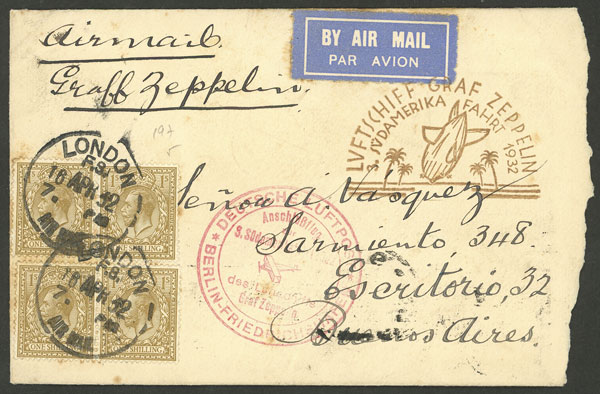 Airmail.
Graff Zeppelin.
BY AIR MAIL
PAR AVION
LUFTSCHIFF GRAF ZEPPELIN
3. SÜDAMERIKA FAHRT
1932
197
LONDON
F.S.
16 APR 32
7. PM
AIR MAIL
LONDON
F.S.
16 APR 32
7. PM
AIR MAIL
ONE SHILLING
ONE SHILLING
ONE SHILLING
SHILLING
DEUTSCHE LUFTP
Anschlußflug
3. Süda
des Luft
Graf Zepp
BERLIN-FRIEDRICHSHAFEN
Señor A. Vasquez
Sarmiento, 348.
Escritorio, 32
Buenos Aires.